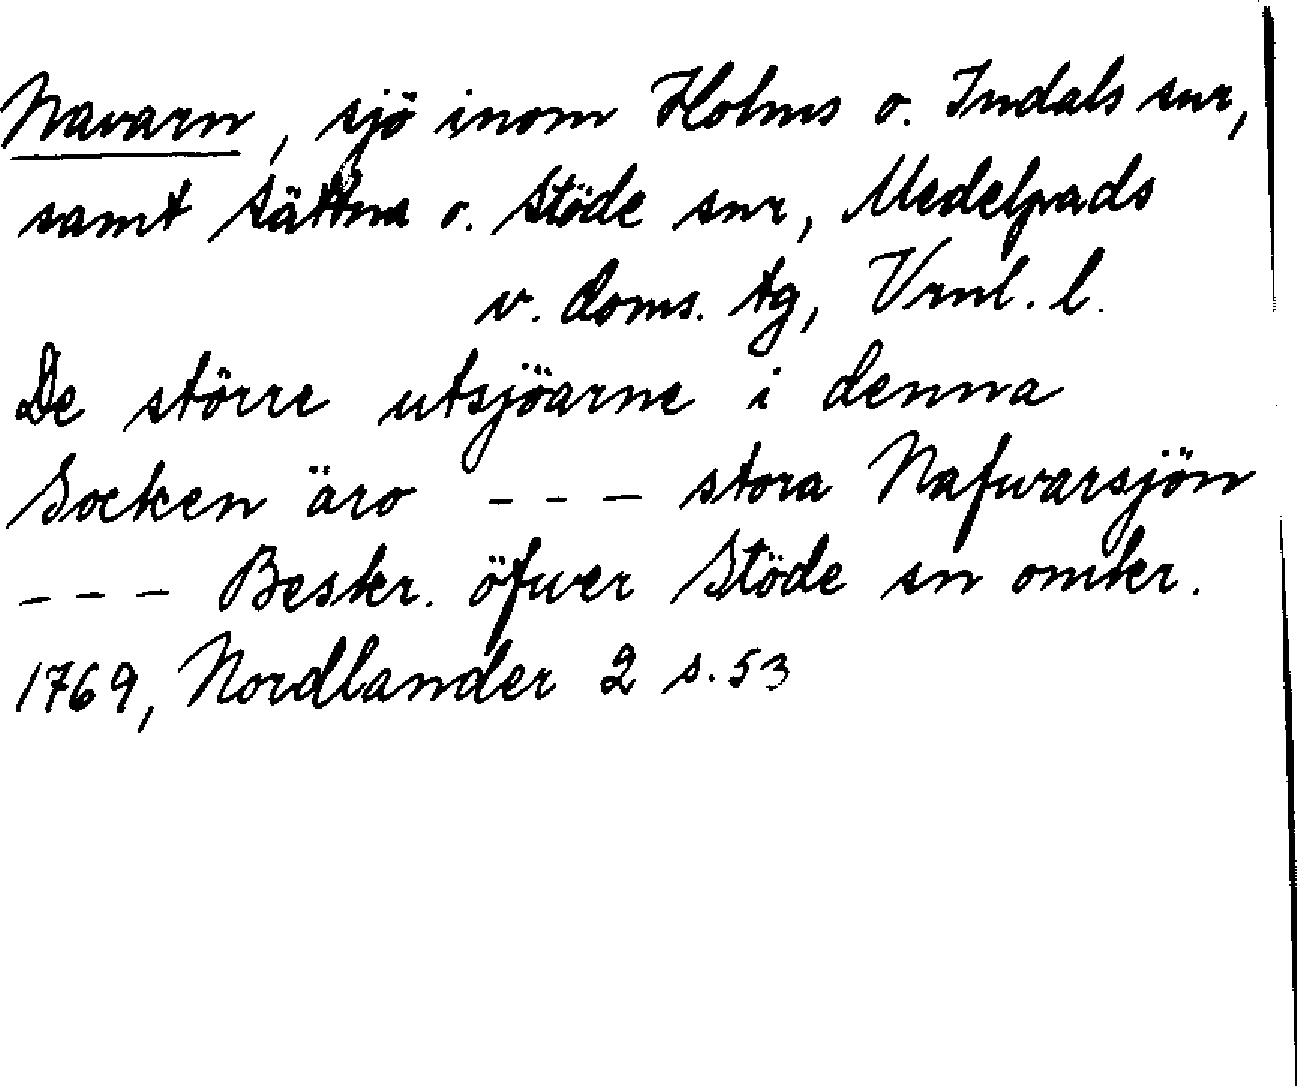 Navarn, sjö inom Holms o. Indals snr,
samt Sättna o. Stöde snr, Medelpads
v. doms. tg, Vrnl. l.
De större utsjöarne i denna
Socken äro --- stora Nafwarsjön
--- Beskr. öfwer Stöde sn omkr.
1769, Nordlander 2 s. 53